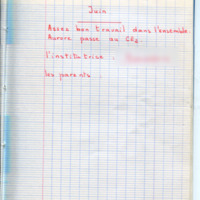 Juin
Assez bon travail dans l'ensemble.
Aurore passe au CE2.
l'institutrice :
les parents :